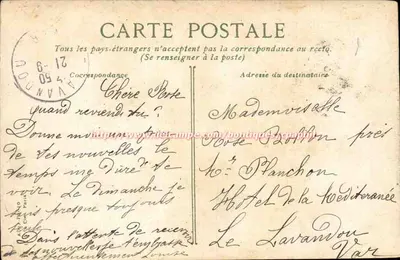 CARTE POSTALE
Tous les pays étrangers n'acceptent pas la correspondance au recto
(Se renseigner à la poste)
Correspondance
Adresse du destinataire
LAVANDOU
21-9
Chère Rose
quand reviendi tu?
Donne moi un peu
de tes nouvelles le
temps me dire te
voir. Le dimanche je
suis presque toujours
seule
Dans l'attente de recevoir
de tes nouvelles je t'embrasse
Louise
Mademoiselle
Rose Bottin près
Mr Planchon
Hotel de la Méditeranée
Le Lavandou
Var